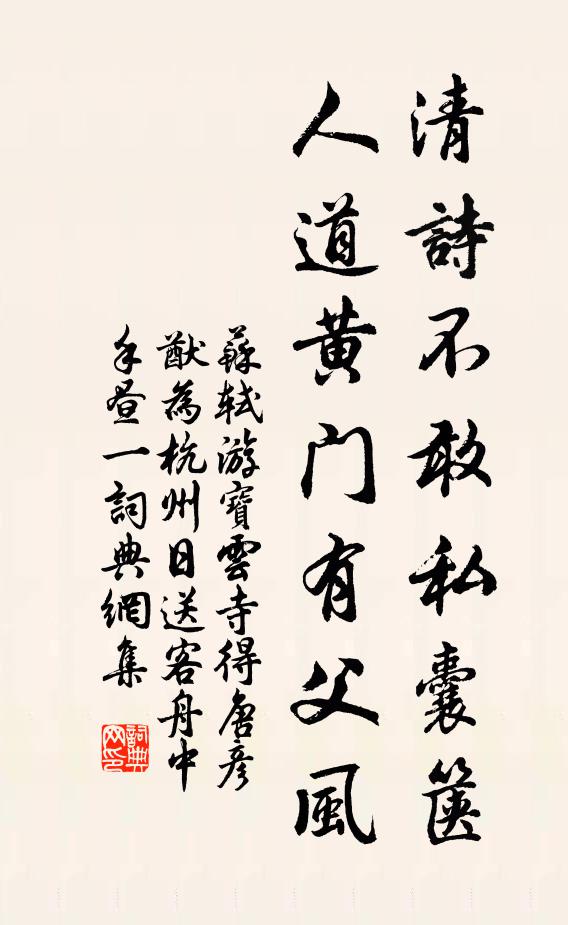 清詩不敢私囊篋
人道黃門有父風
蘇軾游寶雲寺得唐彥
猷為杭州日送客舟中
手昼一詞典網集
詞典網印